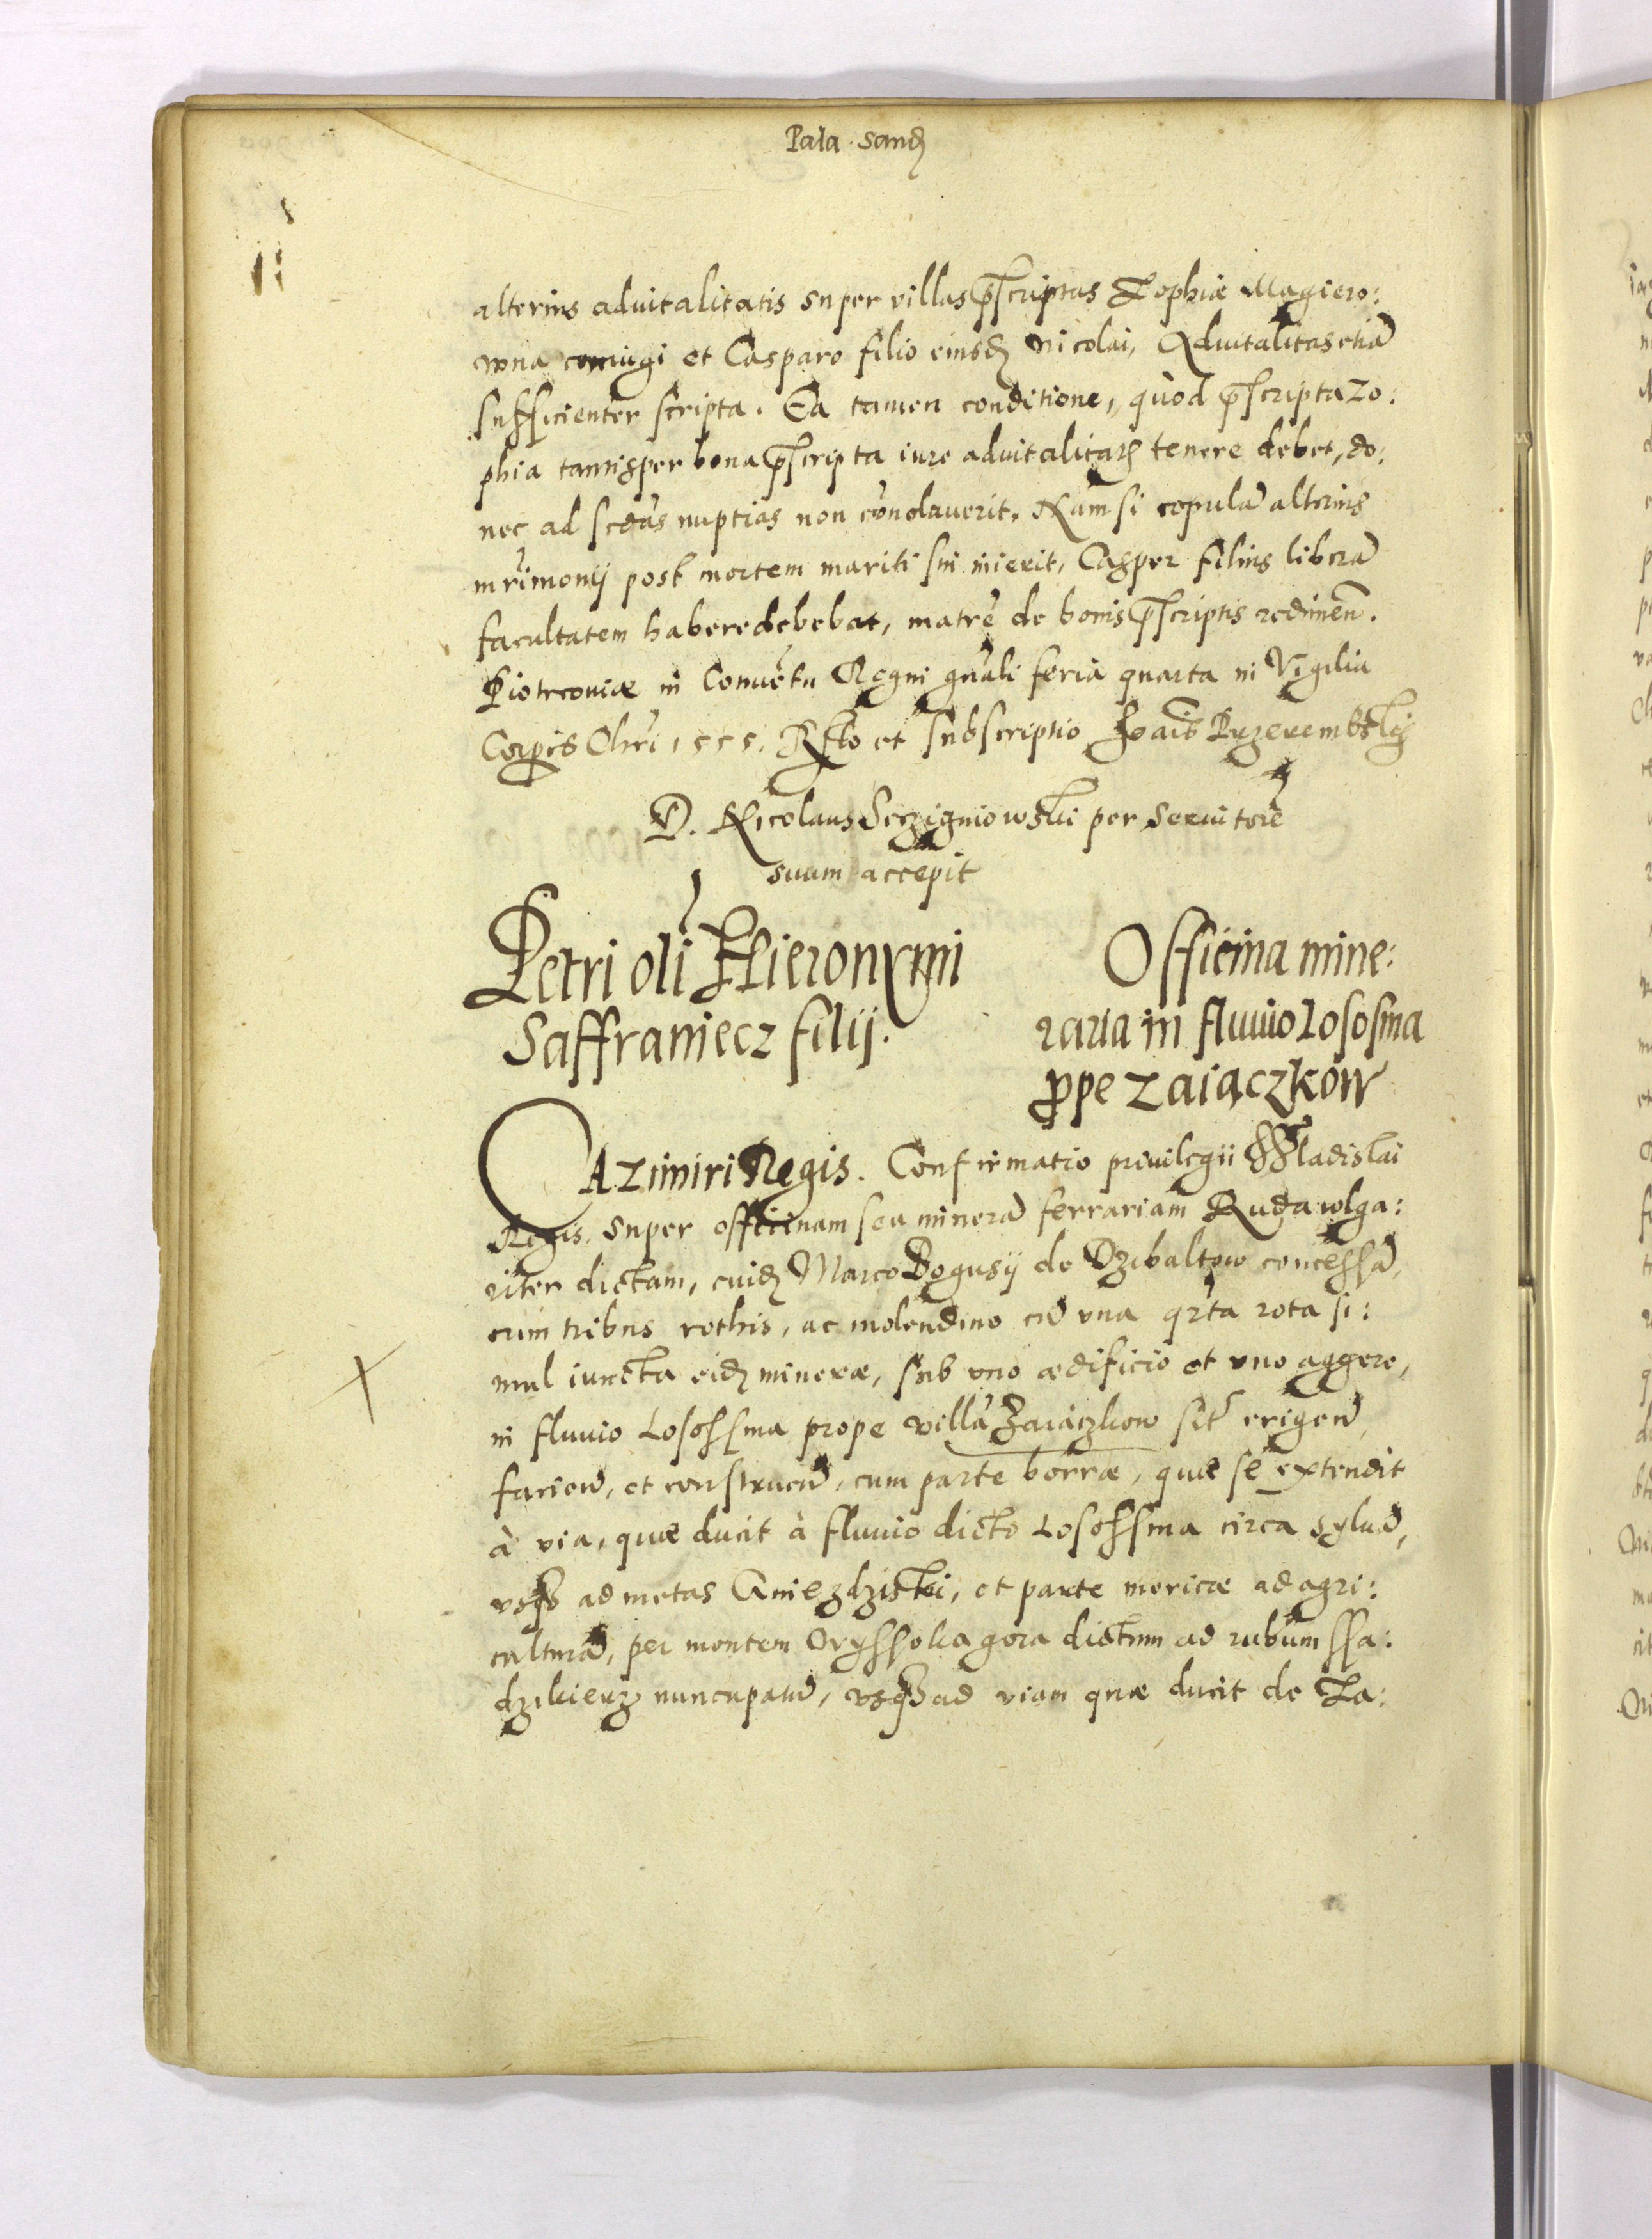 Pala. Sand
alterius aduitalitatis super villas p̄scriptas Zophiæ Magiero:
wna coniugi et Casparo filio eiusdē Nicolai, Aduitalitas etiā
sufficienter scripta. Ea tamen conditione, quòd p̄scripta Zo:
phia tantisper bona p̄scripta iure aduitalitatē tenere debet, do:
nec ad scdās nuptias non conolauerit. Nam si copulā alterius
mr̄imonij post mortem mariti sui inierit, Casper filius liberā
facultatem habere debebat, matrē de bonis p̄scriptis redimen̄.
Piotrcouiæ in Conuētu Regni gn̄ali feria quarta in Vigilia
Corp̄is Chr̄i 1555. R̄sto et subscriptio Joan̄is Przerembskj
D. Nicolaus Sczigniowski per seruitorē
suum accepit
Petri oli͂ Hieronymi
Saffraniecz filij.
Officina mine:
raria in fluuio Lososma
p̄pe Zaiączkow
CAzimiri Regis. Confirmatio priuilegii Wladislai
Regis super officinam seu minerā ferrariam Ruda wlga:
riter dictam, cuidē Marco Bogusij de Dzibaltow concessā,
cum tribus rothis, ac molendino cū vna qr̄ta rota si:
mul iuncta eidē mineræ, sub vno ædificio et vno aggere,
in fluuio Lososssma prope villā Zaiaczkow sitr̄ erigend̄,
faciend̄, et construend̄, cum parte borræ, quæ se extendit
à via, quæ ducit à fluuio dicto Lososssma circa syluā,
vsq; ad metas Gniezdziski, et parte mericæ ad agri:
culturā, per montem Oryssoka gora dictum ad rubum ssa:
dzikierz nuncupatū, vsq; ad viam quæ ducit de Za: